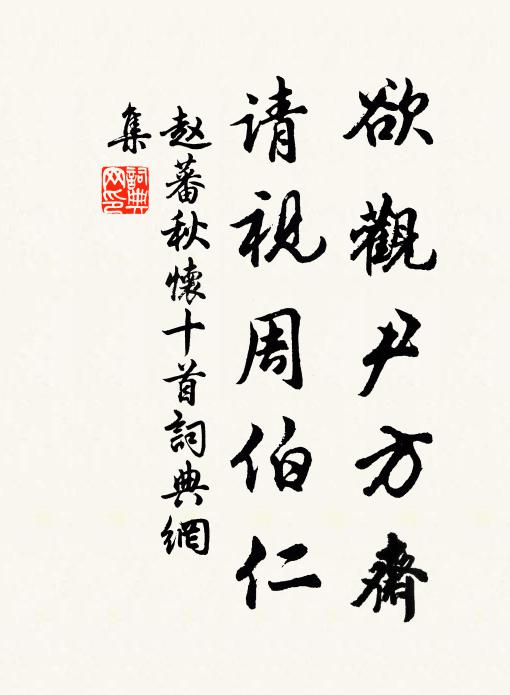 欲觀尹方齋
请視周伯仁
赵蕃秋懷十首詞典網
集
詞典網印